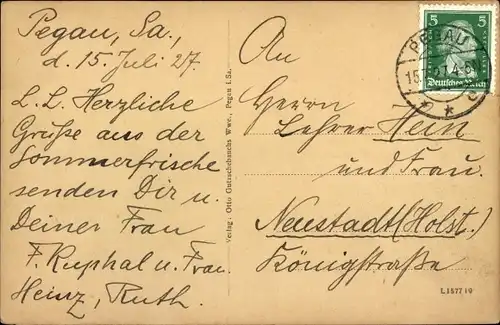 Pegau, Sa.,
d. 15. Juli 27.
L. L. Herzliche
Grüße aus der
Sommerfrische
senden Dir u.
Deiner Frau
F. Kuphal u. Frau
Heinz, Ruth.
Verlag: Otto Gutzschebauchs Wwe., Pegau i. Sa.
5 5
Deutsches Reich
PEGAU
15.
An
Herrn
Lehrer Hein
und Frau.
Neustadt (Holst.)
Königstraße
L 15771 0